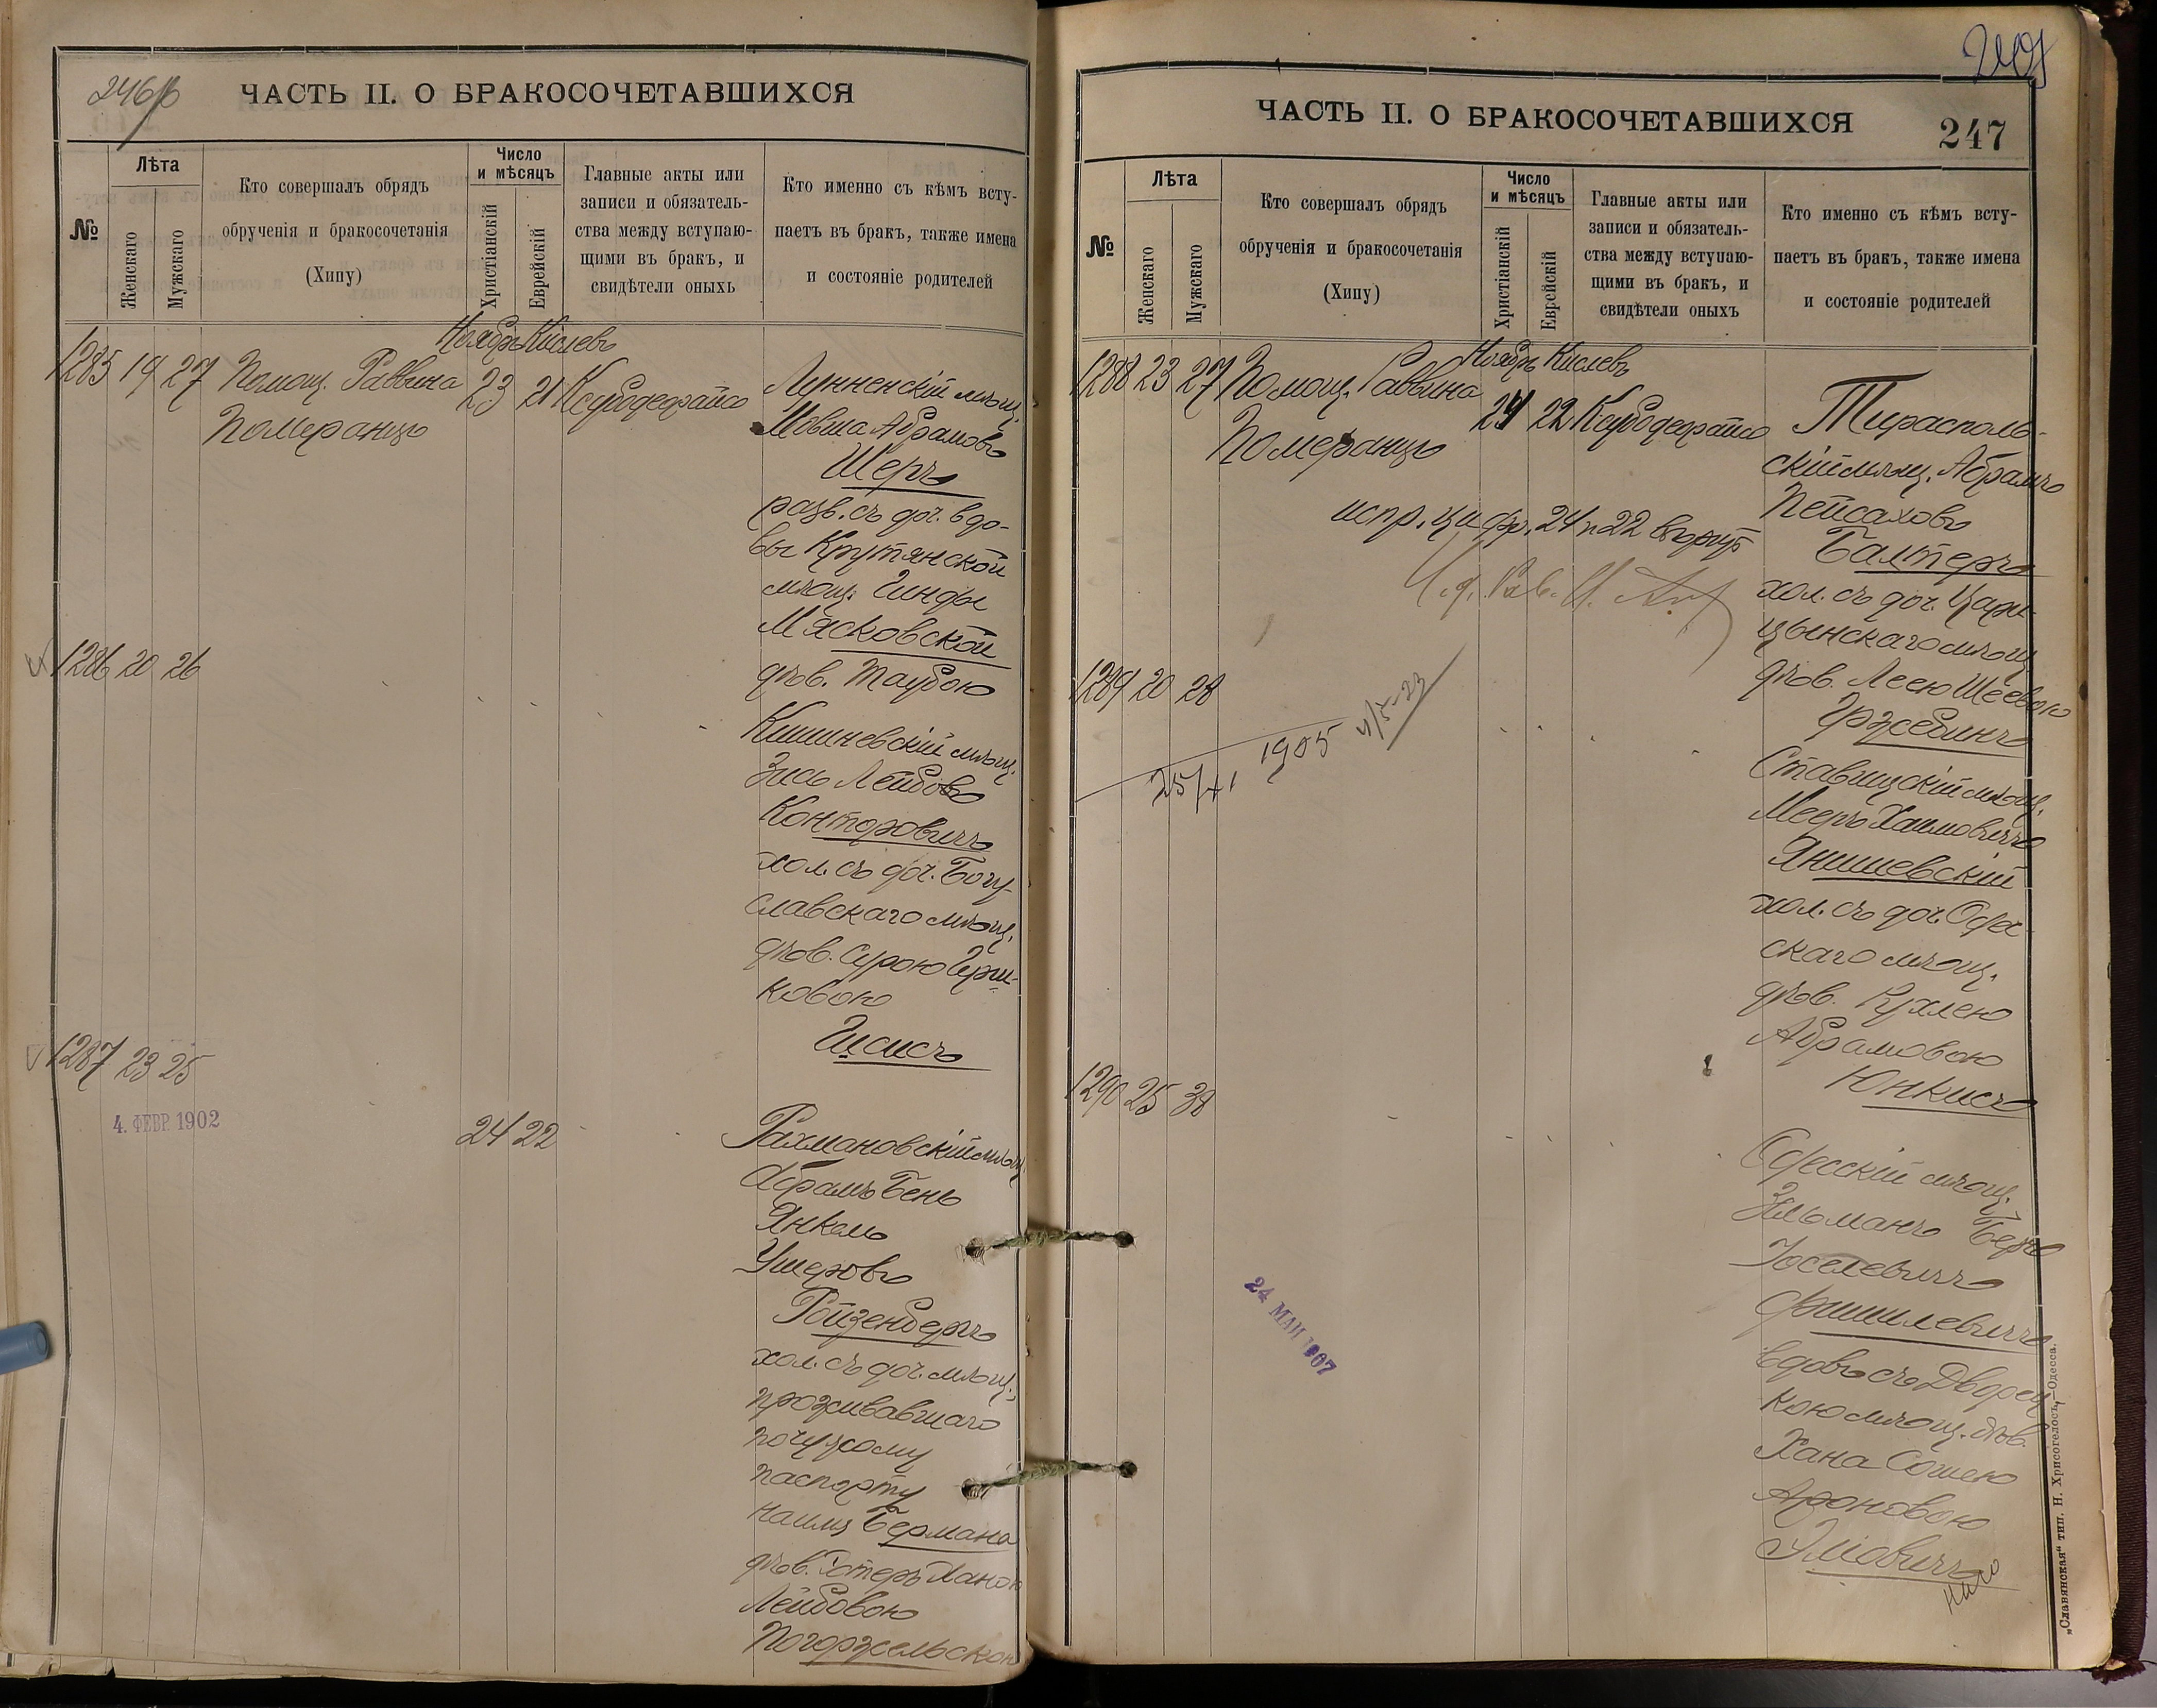 246
ЧАСТЬ II. О БРАКОСОЧЕТАВШИХСЯ
№
Лѣта
Женскаго
Мужскаго
Кто совершалъ обрядъ
обрученія и бракосочетанія
(Хипу)
Число
и мѣсяцъ
Христіанскій
Еврейскій
Главные акты или
записи и обязатель-
ства между вступаю-
щими въ бракъ, и
свидѣтели оныхъ
Кто именно съ кѣмъ всту-
паетъ въ бракъ, также имена
и состояніе родителей
Ноябрь Кислевъ
1285 19 27 Помощ. Раввина 23 21
Померанцъ
Лунненскій мѣщ.
Мовша Абрамовъ
Шеръ
разв. съ доч. вдо-
вы Крутянской
мѣщ. Гинды
Мясковской
дѣв. Таубою
1286 20 26
Кишиневскій мѣщ.
Зись Лейбовъ
Конторовичъ
хол. съ доч. Богу-
славскаго мѣщ.
дѣв. Сурою Гери-
ковою
Гисисъ
1287 23 25
4. ФЕВР. 1902
24 22
Рахмановскій мѣщ.
Абрамъ Бень
Янкель
Ушеровъ
Ройзенбергъ
хол. съ доч. мѣщ.,
проживавшаго
по чужому
паспорту
на имя Бермана
дѣв. Эстеръ Ханою
Лейбовою
Погоржельскою
ЧАСТЬ II. О БРАКОСОЧЕТАВШИХСЯ
247
№
Лѣта
Женскаго
Мужскаго
Кто совершалъ обрядъ
обрученія и бракосочетанія
(Хипу)
Число
и мѣсяцъ
Христіанскій
Еврейскій
Главные акты или
записи и обязатель-
ства между вступаю-
щими въ бракъ, и
свидѣтели оныхъ
Кто именно съ кѣмъ всту-
паетъ въ бракъ, также имена
и состояніе родителей
Ноябрь Кислевъ
1288 23 27 Помощ. Раввина 24 22
Померанцъ
Тирасполь-
скій мѣщ. Абрамъ
Пейсаховъ
Балтеръ
хол. съ доч. Цари-
цынскаго мѣщ.
дѣв. Леею Шеевою
Гржебинъ
испр. цифр. 24 и 22 вѣрить
1289 20 28
25/XI 1905
Ставищскій мѣщ.
Мееръ Хаимовичъ
Янишевскій
хол. съ доч. Одес-
скаго мѣщ.
дѣв. Рухлею
Абрамовою
Юнкисъ
1290 25 38
Одесскій мѣщ.
Зельманъ Беръ
Іоселевичъ
Фишилевичъ
вдовъ съ Дворец-
кою мѣщ. дѣв.
Хана Сошею
Ароновою
Эліовичъ
24 МАЙ 1907
„Славянская“ тип. Н. Хрисогелосъ,—Одесса.